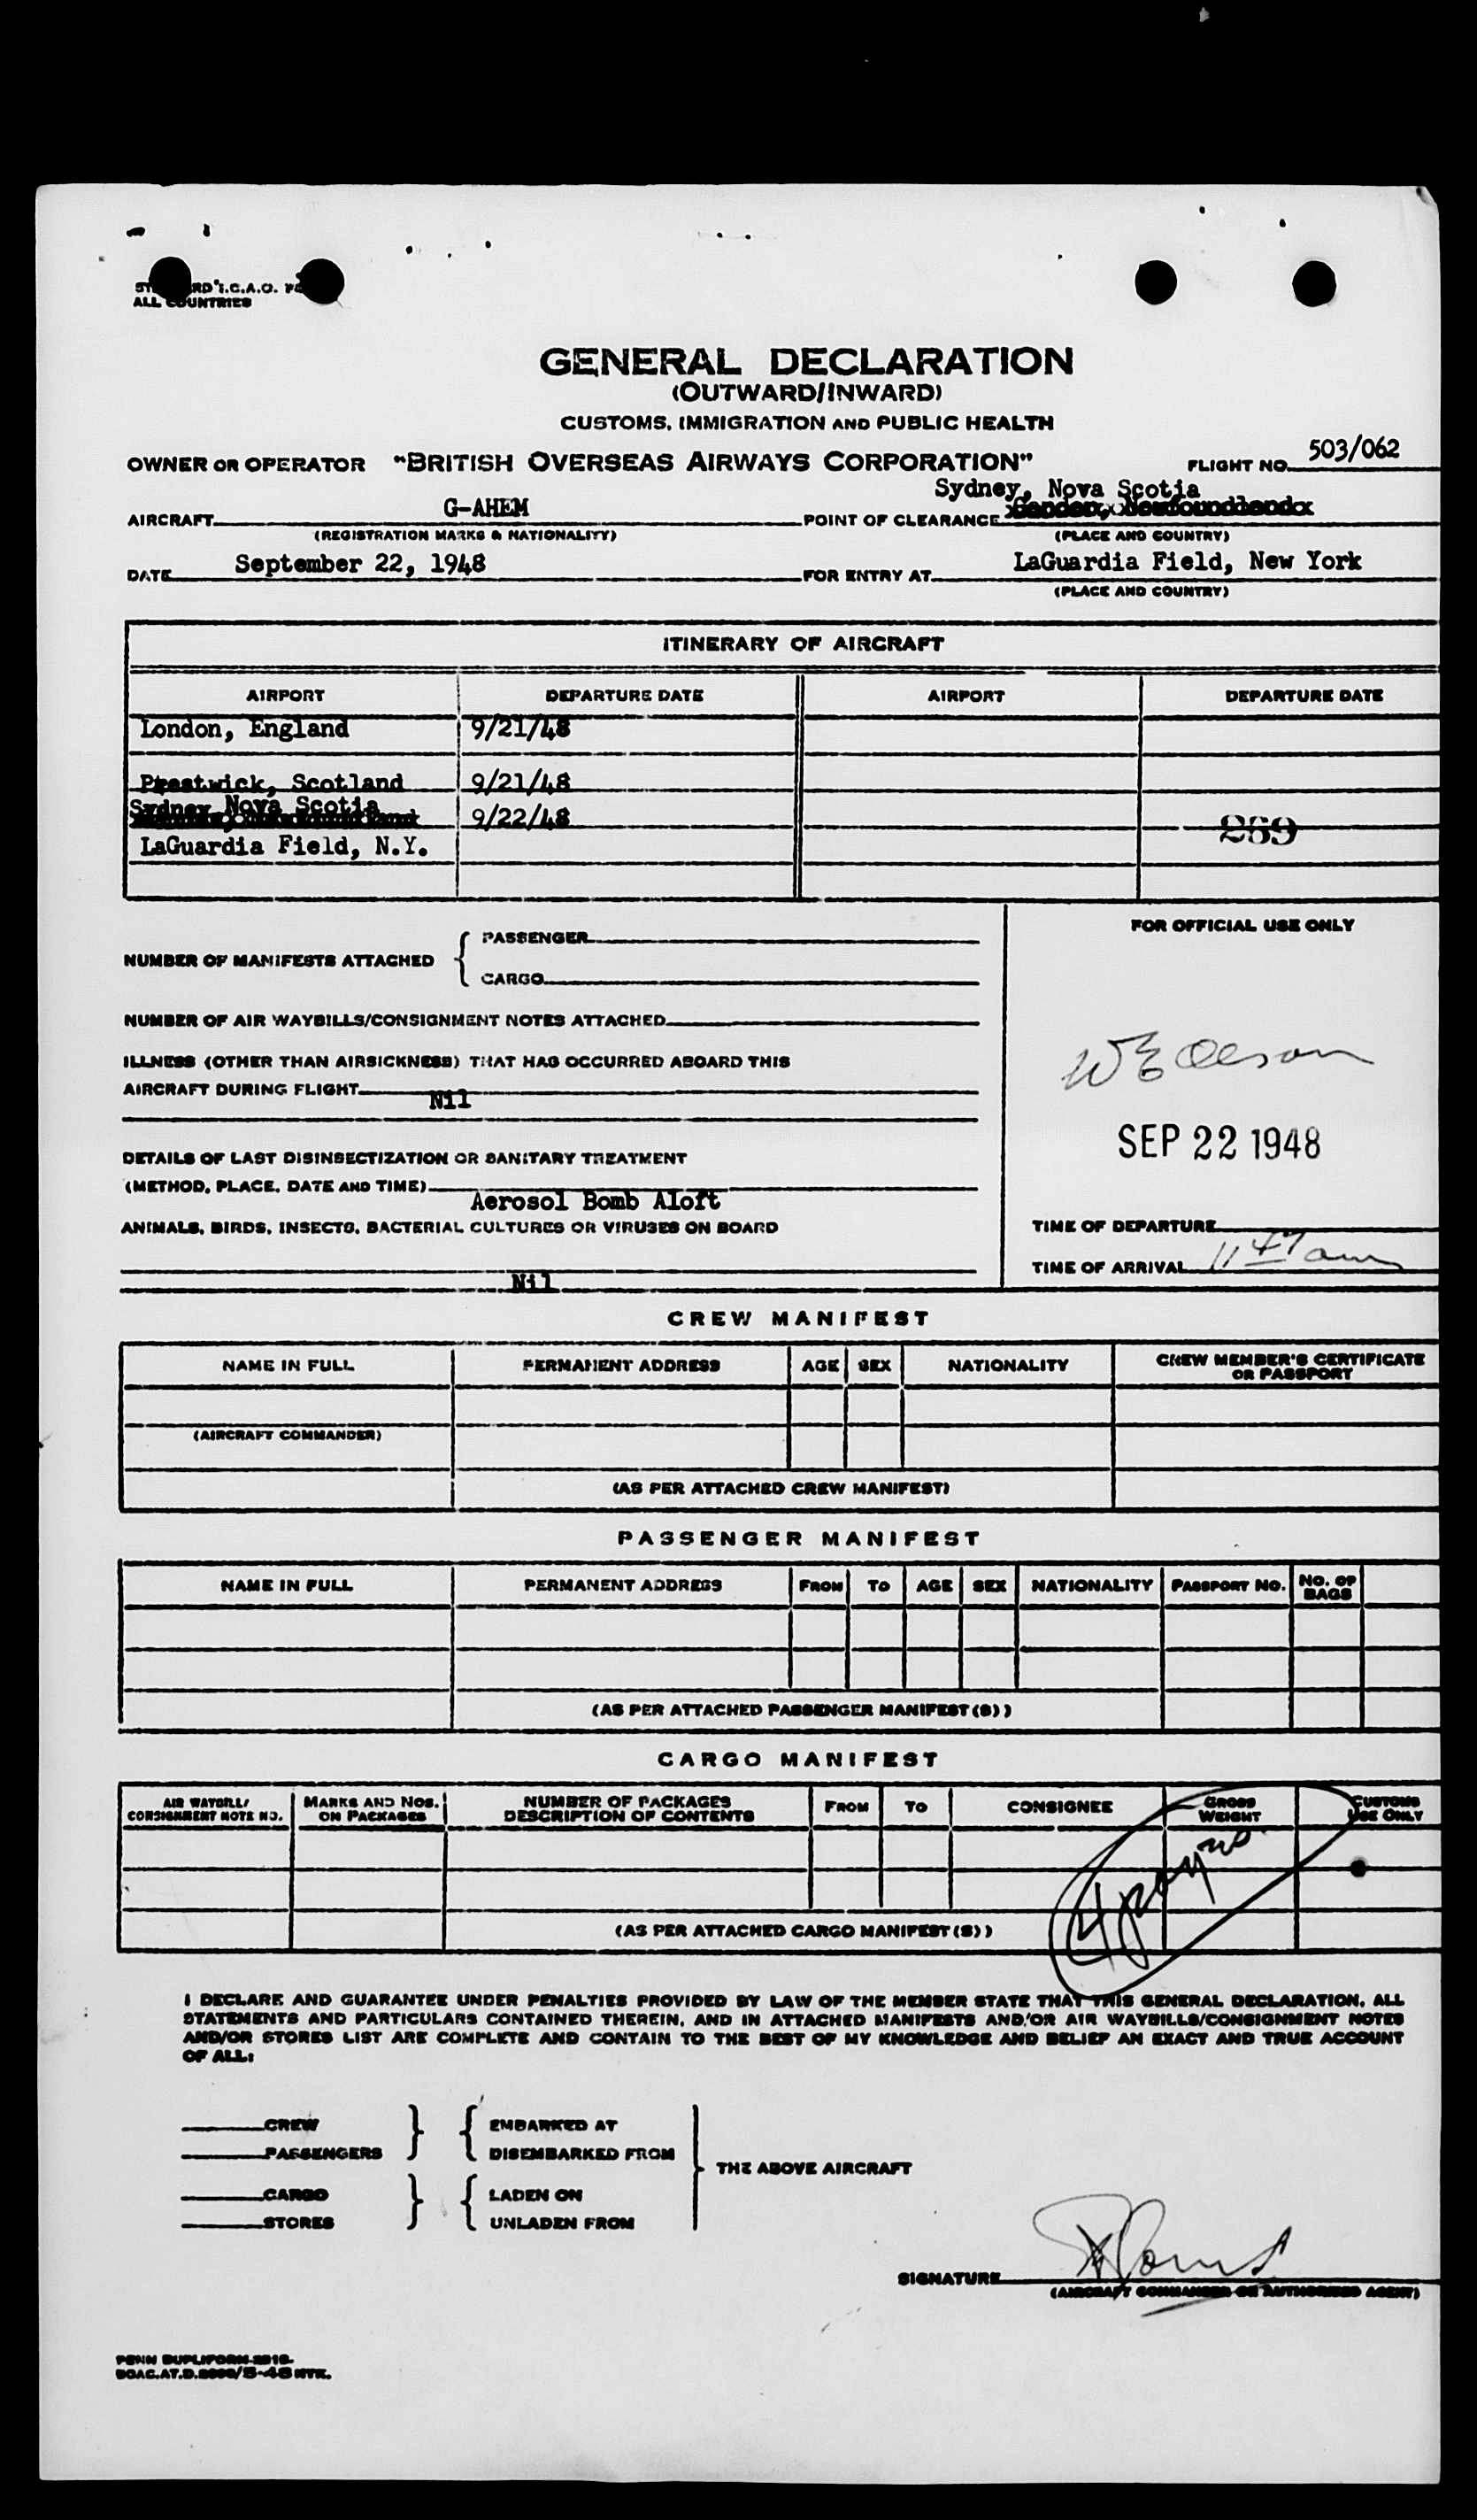 ALL COUNTRIES
GENERAL DECLARATION
(OUTWARD/INWARD)
CUSTOMS, IMMIGRATION AND PUBLIC HEALTH
OWNER OR OPERATOR "BRITISH OVERSEAS AIRWAYS CORPORATION" FLIGHT NO. 503/062
Sydney, Nova Scotia
AIRCRAFT G-AHEM POINT OF CLEARANCE Gander, Newfoundland
(REGISTRATION MARKS & NATIONALITY) (PLACE AND COUNTRY)
DATE September 22, 1948 FOR ENTRY AT LaGuardia Field, New York
(PLACE AND COUNTRY)
ITINERARY OF AIRCRAFT
AIRPORT DEPARTURE DATE AIRPORT DEPARTURE DATE
London, England 9/21/48
Prestwick, Scotland 9/21/48
Sydney Nova Scotia 9/22/48 259
LaGuardia Field, N.Y.
FOR OFFICIAL USE ONLY
NUMBER OF MANIFESTS ATTACHED { PASSENGER
CARGO
NUMBER OF AIR WAYBILLS/CONSIGNMENT NOTES ATTACHED
ILLNESS (OTHER THAN AIRSICKNESS) THAT HAS OCCURRED ABOARD THIS
AIRCRAFT DURING FLIGHT Nil
W E Olson
SEP 22 1948
DETAILS OF LAST DISINSECTIZATION OR SANITARY TREATMENT
(METHOD, PLACE, DATE AND TIME) Aerosol Bomb Aloft
ANIMALS, BIRDS, INSECTS, BACTERIAL CULTURES OR VIRUSES ON BOARD
Nil
TIME OF DEPARTURE
TIME OF ARRIVAL 11 47 am
CREW MANIFEST
NAME IN FULL PERMANENT ADDRESS AGE SEX NATIONALITY CREW MEMBER'S CERTIFICATE OR PASSPORT
(AIRCRAFT COMMANDER)
(AS PER ATTACHED CREW MANIFEST)
PASSENGER MANIFEST
NAME IN FULL PERMANENT ADDRESS FROM TO AGE SEX NATIONALITY PASSPORT NO. NO. OF BAGS
(AS PER ATTACHED PASSENGER MANIFEST(S))
CARGO MANIFEST
AIR WAYBILL/ CONSIGNMENT NOTE NO. MARKS AND NOS. ON PACKAGES NUMBER OF PACKAGES DESCRIPTION OF CONTENTS FROM TO CONSIGNEE GROSS WEIGHT CUSTOMS USE ONLY
(AS PER ATTACHED CARGO MANIFEST(S))
I DECLARE AND GUARANTEE UNDER PENALTIES PROVIDED BY LAW OF THE MEMBER STATE THAT THIS GENERAL DECLARATION, ALL
STATEMENTS AND PARTICULARS CONTAINED THEREIN, AND IN ATTACHED MANIFESTS AND/OR AIR WAYBILLS/CONSIGNMENT NOTES
AND/OR STORES LIST ARE COMPLETE AND CONTAIN TO THE BEST OF MY KNOWLEDGE AND BELIEF AN EXACT AND TRUE ACCOUNT
OF ALL:
CREW } { EMBARKED AT
PASSENGERS DISEMBARKED FROM
THE ABOVE AIRCRAFT
CARGO } { LADEN ON
STORES UNLADEN FROM
SIGNATURE
(AIRCRAFT COMMANDER OR AUTHORISED AGENT)